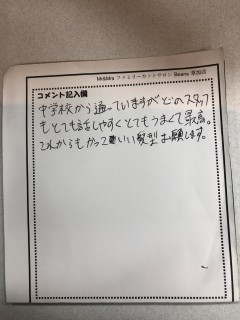 Mr&Mrs ファミリーカットサロン Beans 草加店
コメント記入欄
中学校から通っていますがどのスタッフ
もとても話しやすくとてもうまくて最高。
これからもかっこいい髪型お願します。